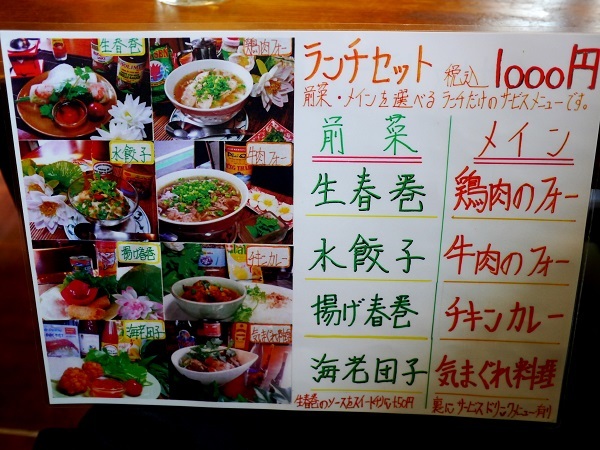 生春巻
鶏肉フォー
水餃子
牛肉フォー
揚げ春巻
チキンカレー
海老団子
気まぐれ料理
ランチセット 税込 1000円
前菜・メインを選べるランチだけのサービスメニューです。
前菜 メイン
生春巻 鶏肉のフォー
水餃子 牛肉のフォー
揚げ春巻 チキンカレー
海老団子 気まぐれ料理
生春巻のソースをスイートチリに
裏にサービスドリンクメニュー有り